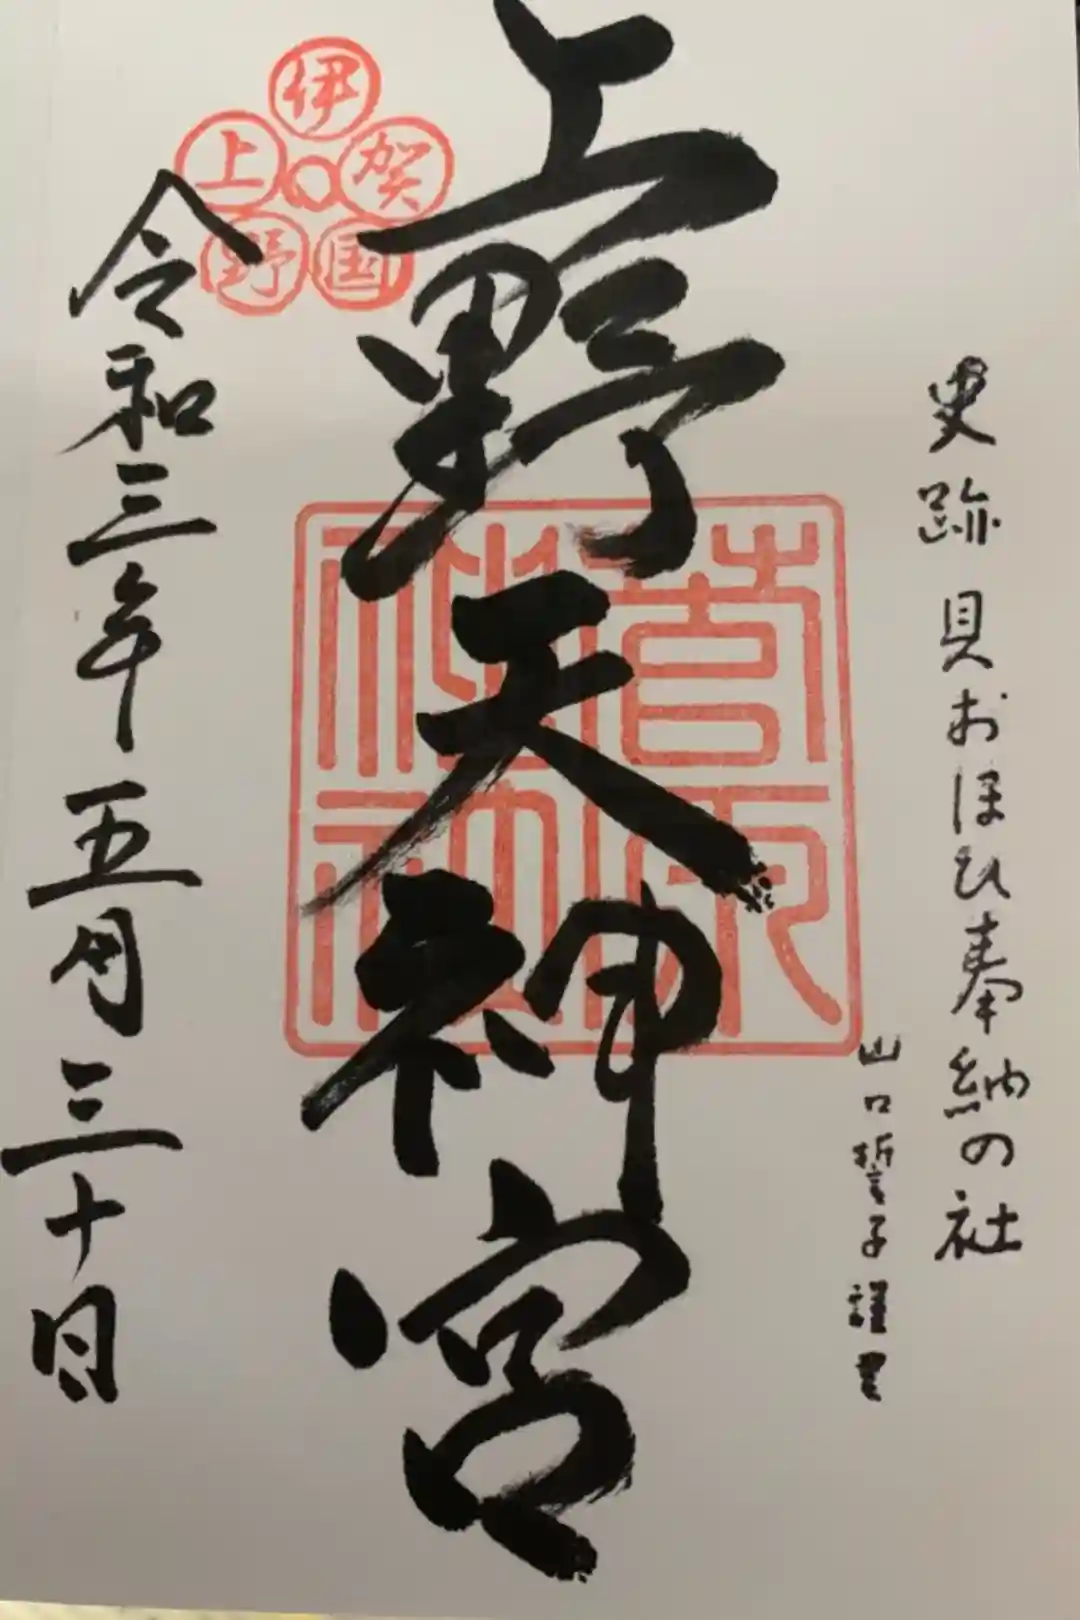 史跡 貝おほひ奉納の社
山口誓子謹書
上野天神宮
菅原神社
伊賀国上野
令和三年五月三十日